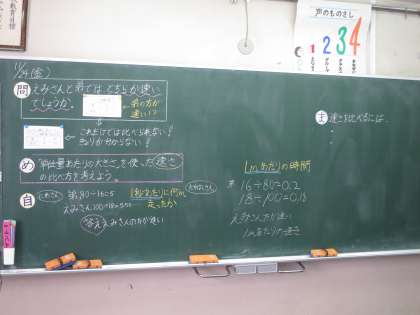 声のものさし
1 2 3 4
11/29(金)
問 えみさんと弟ではどちらが速いでしょうか。
弟の方が速い!?
これだけでは比べられない!
きょりが分からない!
め 単位量あたりの大きさを使った速さの比べ方を考えよう。
自
弟 80÷16=5
1秒あたりに何m走ったか
えみさん 100÷18=5.5
答え えみさんの方が速い
ま 速さを比べるには、
1mあたりの時間
弟 16÷80=0.2
18÷100=0.18
えみさんが速い
1mあたりの速さ